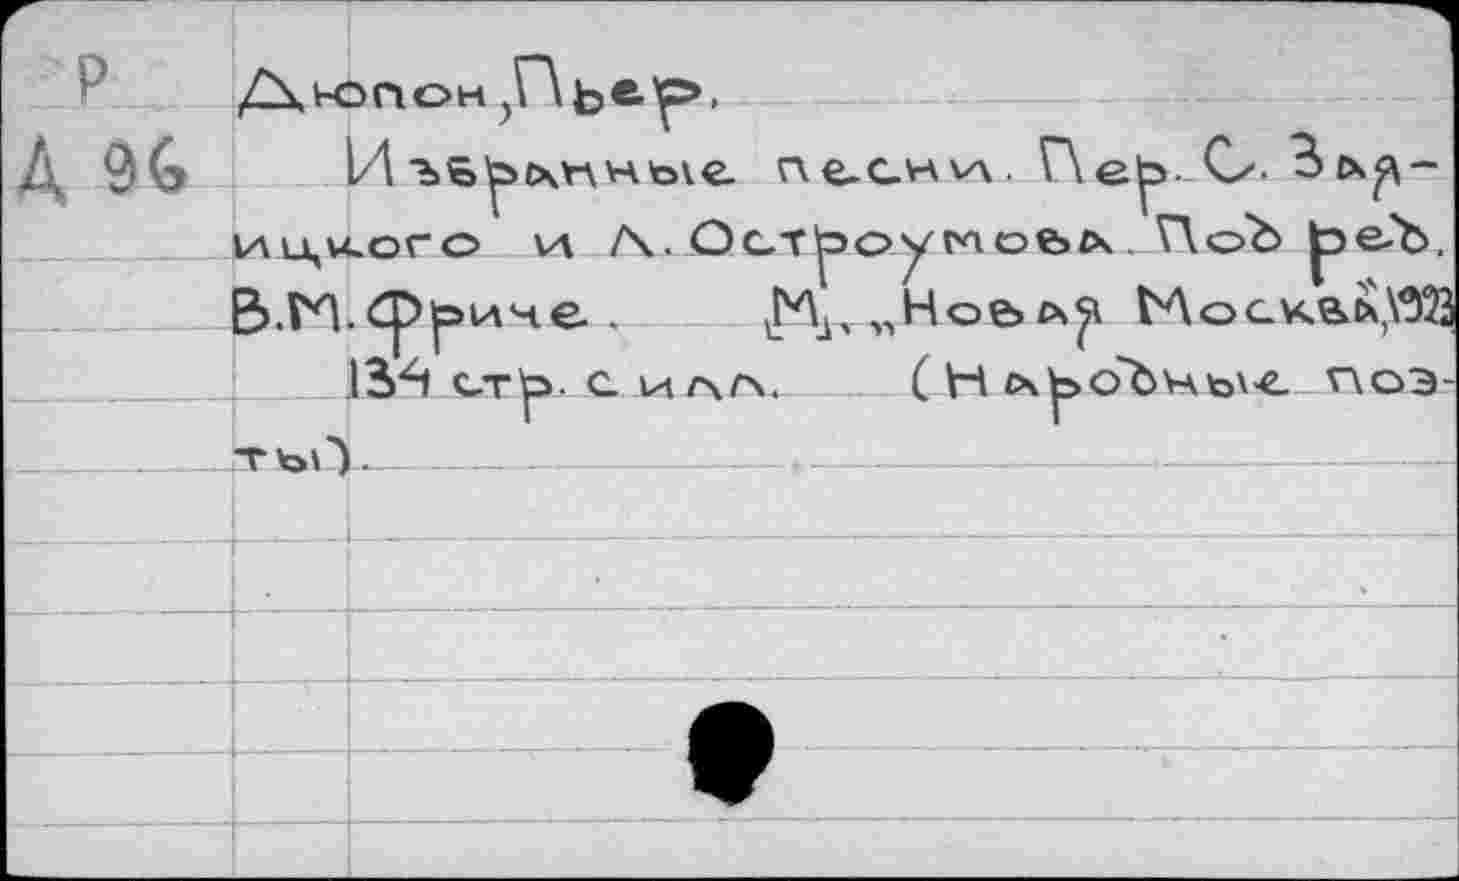 Р Дюпон, Пьер.
Д 96 Избранные песни. Пер. С. Зая-
ицкого и Л. Остроумова. Под ред.
В.М. Фриче. [М], „Новая Москва, 1923
134 стр. с илл. (Народные поэ-
ты).